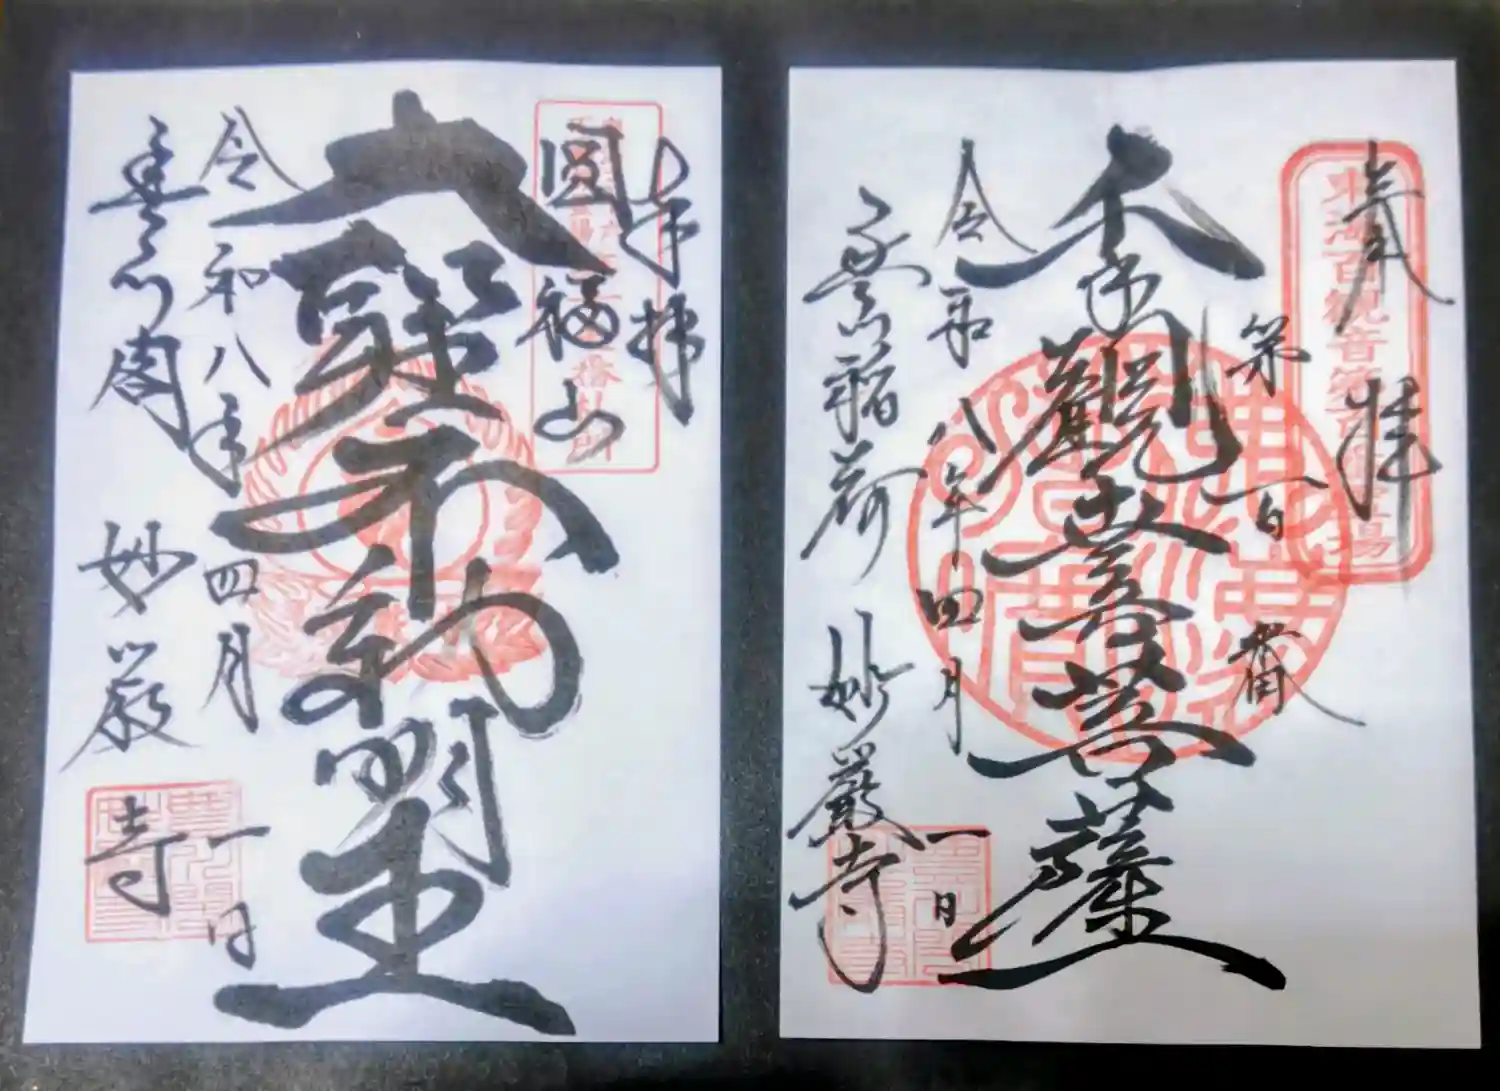 奉拝
圓福山
大聖不動明王
令和八年四月一日
豊川閣 妙厳寺
奉拝
東海百観音第百番霊場
第一百番
観世音菩薩
令和八年四月一日
豊川稲荷 妙厳寺